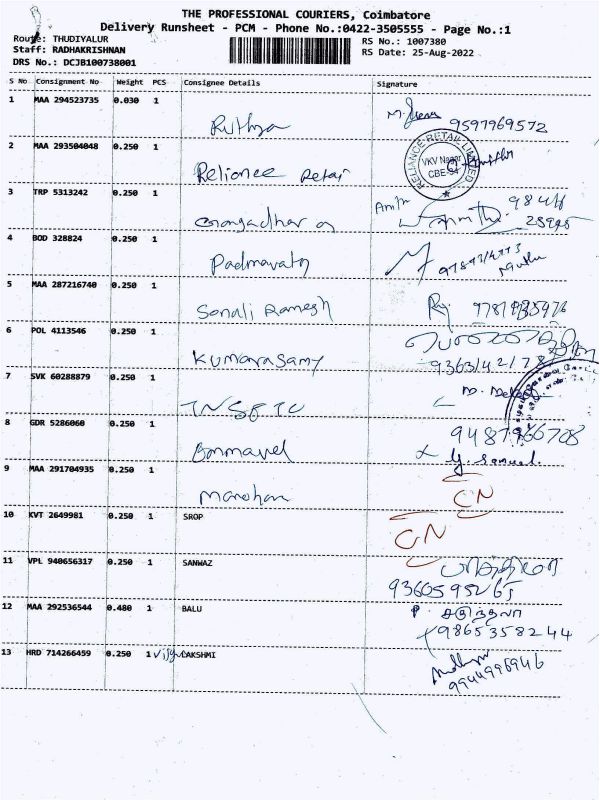 THE PROFESSIONAL COURIERS, Coimbatore
Delivery Runsheet - PCM - Phone No.:0422-3505555 - Page No.:1
Route: THUDIYALUR
RS No.: 1007380
Staff: RADHAKRISHNAN
RS Date: 25-Aug-2022
DRS No.: DCJB100738001
S No Consignment No Weight PCS Consignee Details Signature
1 MAA 294523735 0.030 1
Ruthya 9597969572
2 MAA 293504048 0.250 1
RELIANCE RETAIL LIMITED
VKV Nagar
CBE-34
Relionee Retai
3 TRP 5313242 0.250 1
Amith
Gangadharan
4 BOD 328824 0.250 1
Padmavathy
Muthu
5 MAA 287216740 0.250 1
Sonali Ramesh
6 POL 4113546 0.250 1
Kumarasamy
7 SVK 60288879 0.250 1
8 GDR 5286060 0.250 1
Bommavel Y. Samuel
9 MAA 291704935 0.250 1
Manohan CN
10 KVT 2649981 0.250 1 SROP
CN
11 VPL 940656317 0.250 1 SANWAZ
12 MAA 292536544 0.480 1 BALU
P.
9865358244
13 HRD 714266459 0.250 1 LAKSHMI
9944996946